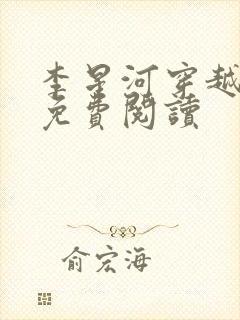 李星河穿越
免費閱讀
俞宏海